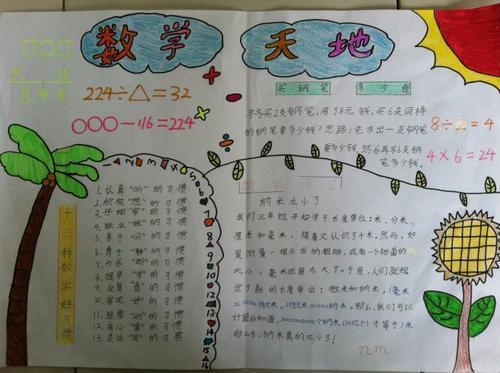 数学
天地
□□□
× 4
8 4 8
224÷△=32
○○○-116=224
买钢笔 多少钱
冬冬买2支钢笔，用了8元钱，买6支同样
的钢笔要多少钱？思路：先求出一支钢笔
要多少钱，然后再求6支钢
笔多少钱。
8÷2=4
4×6=24
十三种数学好习惯
1.认真"听"的习惯
2.积极"想"的习惯
3.仔细"审"的习惯
4.独立"做"的习惯
5.善于"问"的习惯
6.勇于"辩"的习惯
7.力求"断"的习惯
8.提早"学"的习惯
9.反复"查"的习惯
10.客观"评"的习惯
11.经常"动"的习惯
12.有心"集"的习惯
13.灵活"用"的习惯
数学日记
纳米太小了
我们三年级开始学习长度单位：米、分米、
厘米和毫米，接着又认识了千米。然而，如
果测量一根头发的粗细，或者一个细菌的
大小，毫米还是太大了。于是，人们就规
定了新的长度单位：微米和纳米，1毫米
=1000微米，1微米=1000纳米。那么，我们可以
计算后知道，1000000000个纳米(10亿个)才等于1米
那么长，纳米真的太小了！
nm